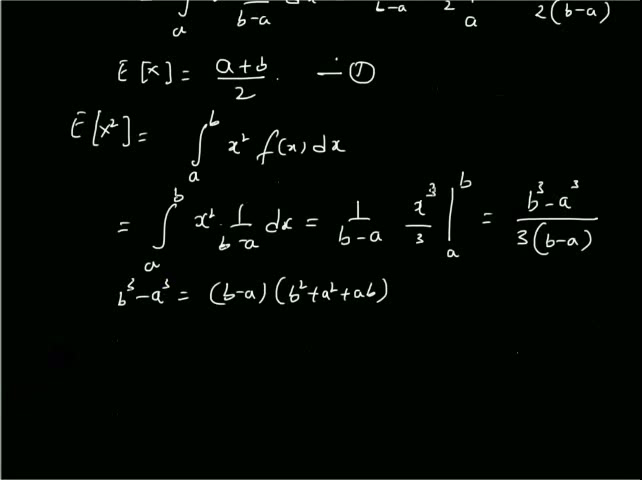 a b-a b-a 2 a 2(b-a)
E[x] = a+b/2. — ①
E[x²] = ∫ₐᵇ x² f(x) dx
= ∫ₐᵇ x² · 1/b-a dx = 1/b-a x³/3 |ₐᵇ = b³-a³/3(b-a)
b³-a³ = (b-a)(b²+a²+ab)